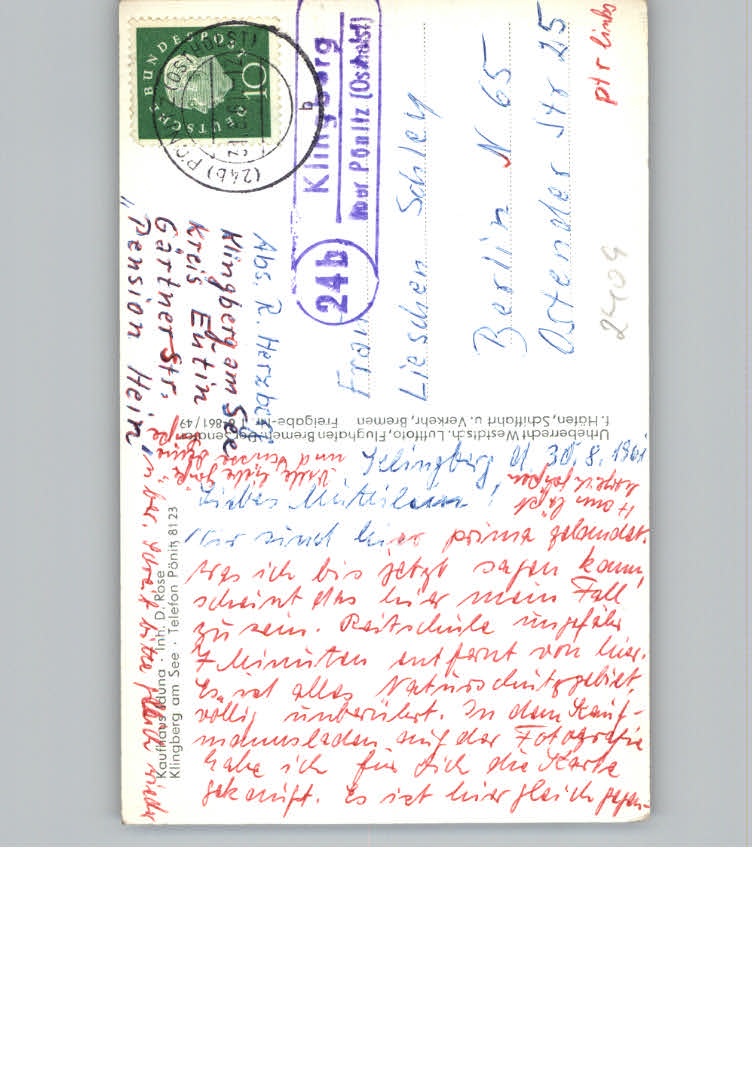 DEUTSCHE BUNDESPOST
10
(24b) PÖN (OSTHOLST)
Klingberg
über Pönitz (Ostholst)
24b
b
ptr links
Frau
Lieschen Schley
Berlin N 65
Ostender Str 25
2409
Abs. R. Herzberg
Klingberg am See
Kreis Eutin
Gärtner-Str.
"Pension Hein
Urheberrecht Westdtsch. Luftfoto, Flughafen Bremen, Der Senator
f. Häfen, Schiffahrt u. Verkehr, Bremen Freigabe-Nr. 861/49
Kaufhaus Jduna · Inh. D. Rose
Klingberg am See · Telefon Pönitz 81 23
Klingberg d. 30.8.1961
Liebes Muttilein!
Wir sind hier prima gelandet.
Was ich bis jetzt sagen kann,
scheint das hier mein Fall
zu sein. Reitschule ungefähr
7 Minuten entfernt von hier.
Es ist alles Naturschutzgebiet,
völlig unberührt. In dem Kauf-
mannsladen auf der Fotografie
habe ich für Dich die Karte
gekauft. Es ist hier gleich gegen-
über. Schreib bitte gleich wieder
Viele liebe
und Küsse Deine